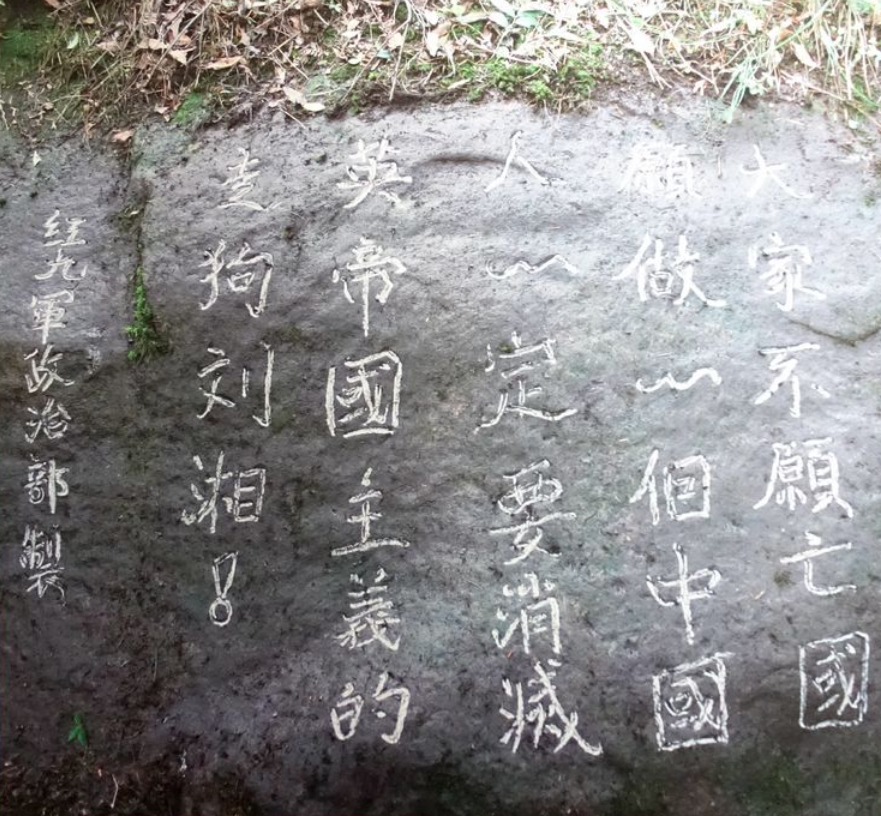 大家不願亡國
願做一個中國
人一定要消滅
英帝國主義的
走狗刘湘！
红九軍政治部製